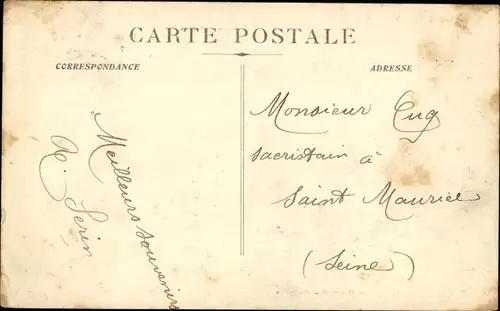 CARTE POSTALE
CORRESPONDANCE
ADRESSE
Meilleurs souvenirs
Serin
Monsieur Cug
sacristain à
Saint Maurice
(Seine)